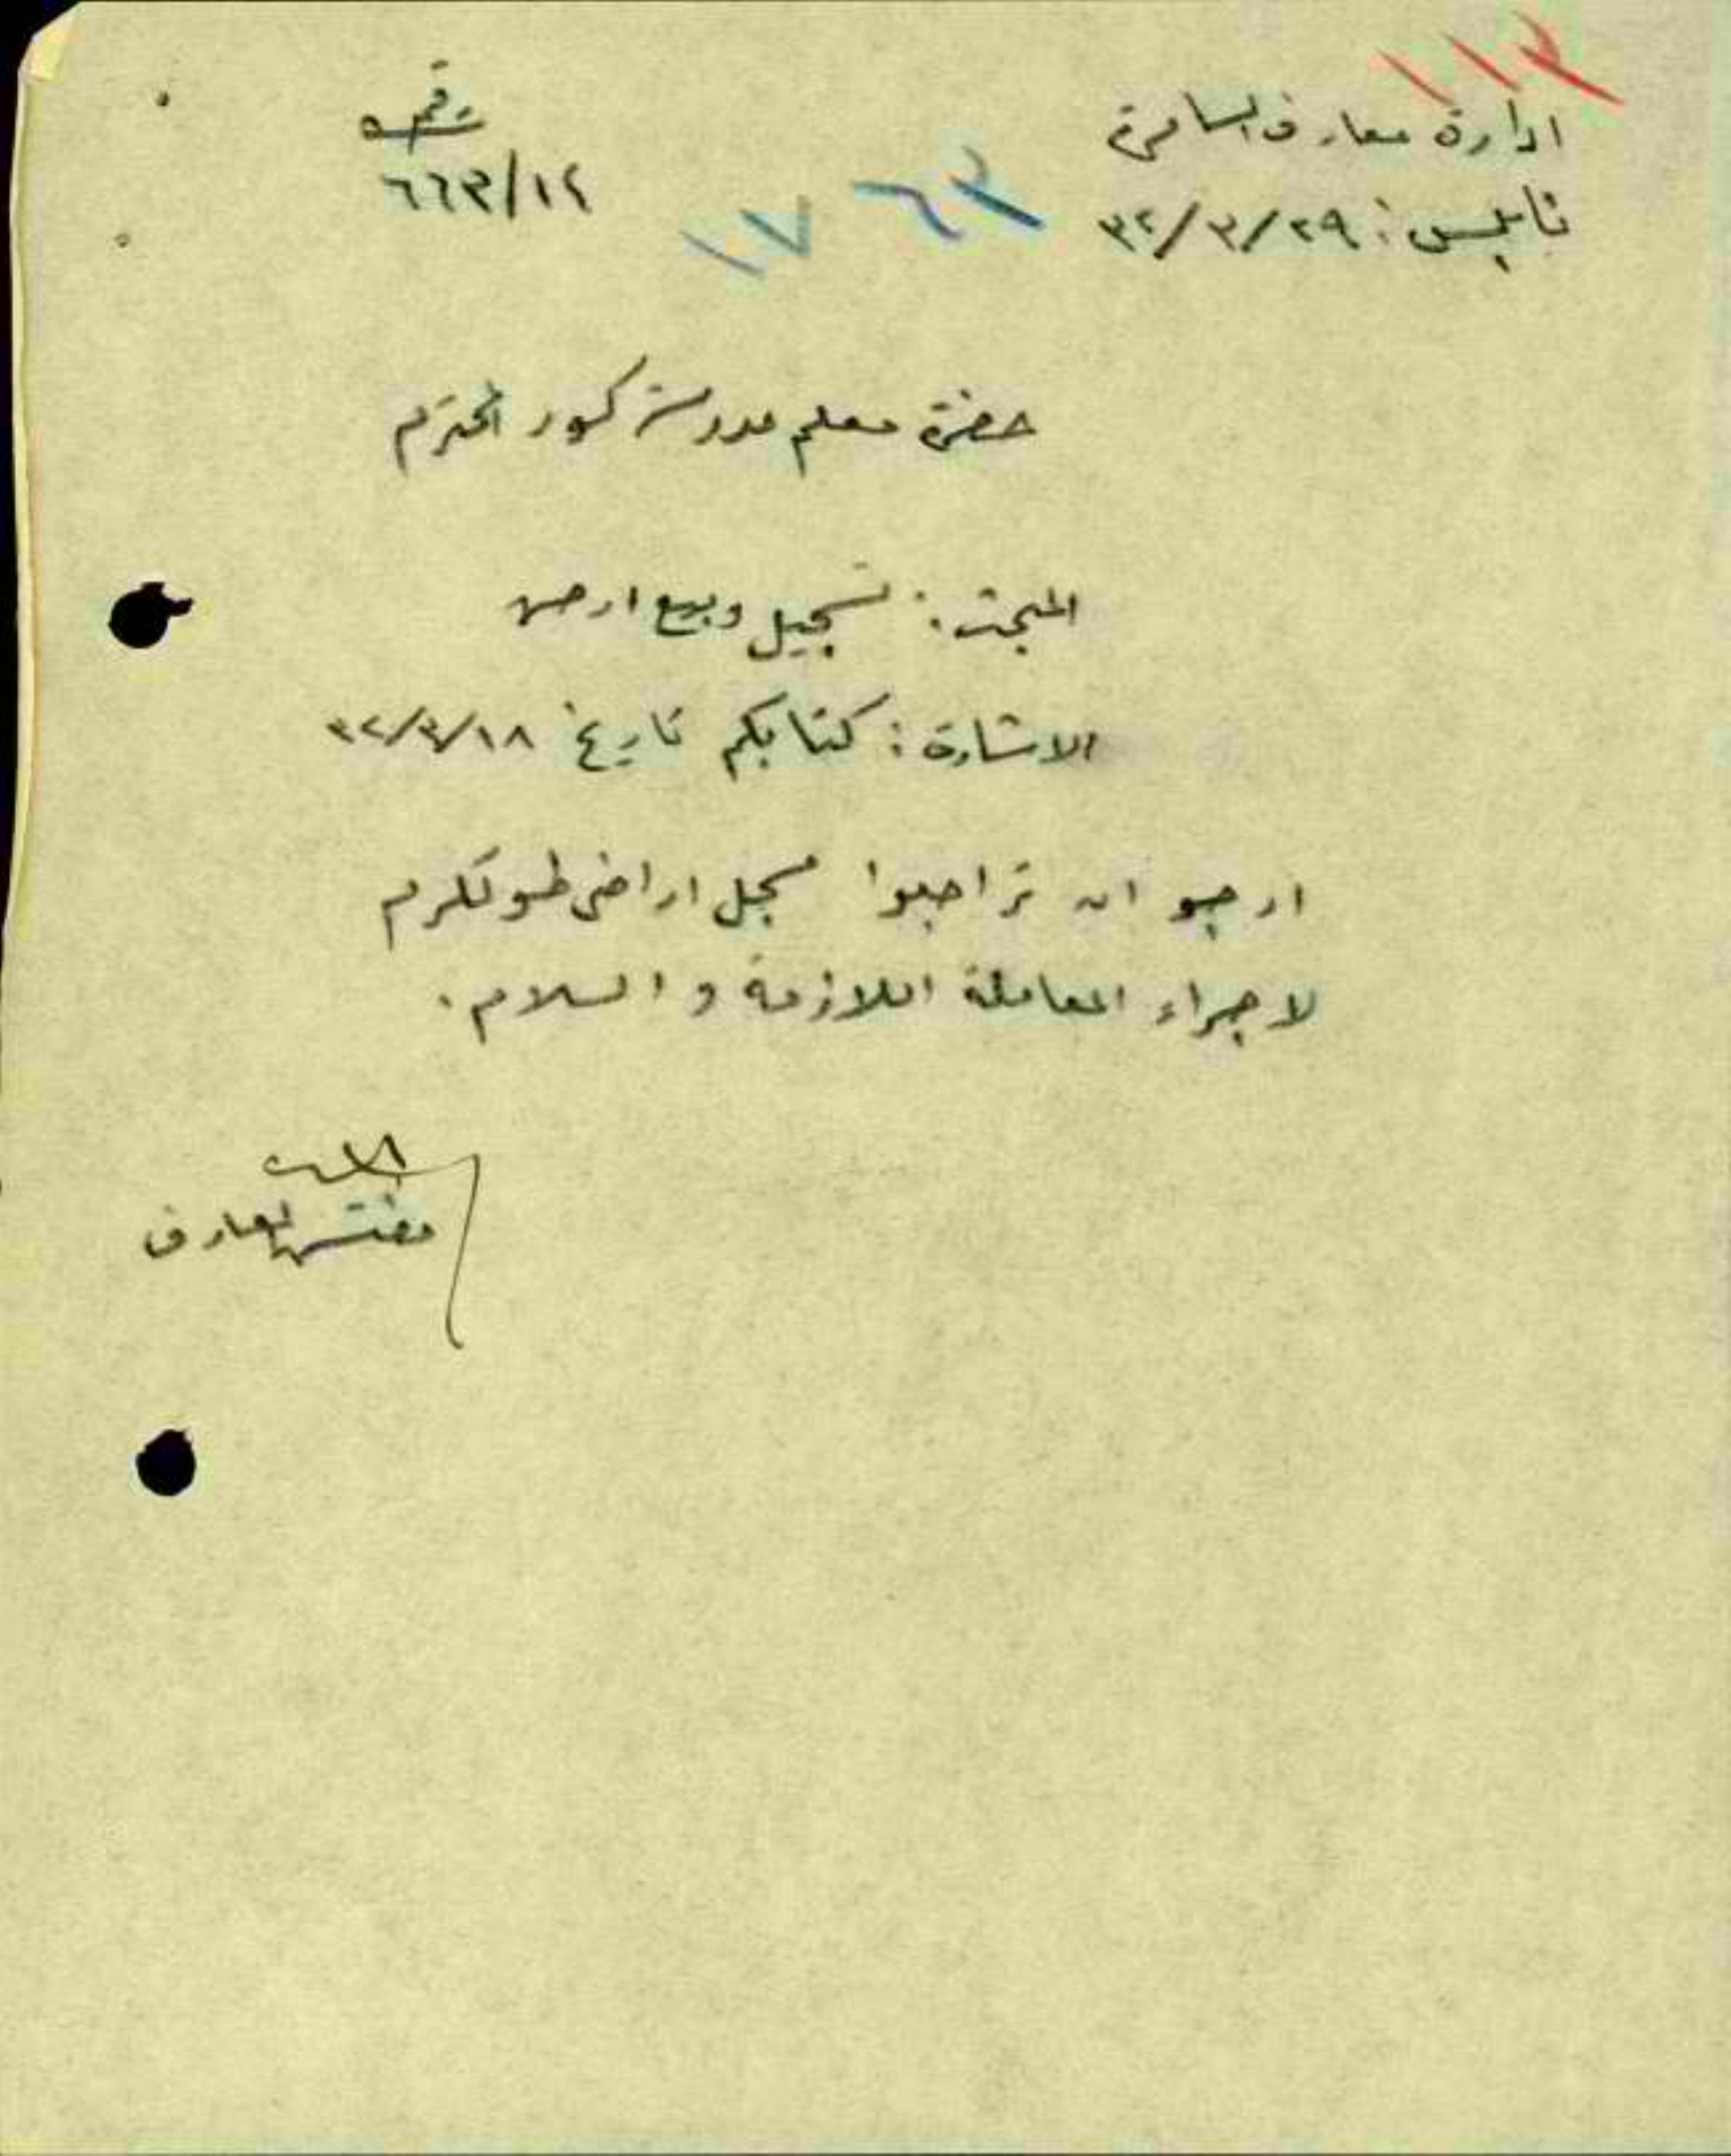 ١١٣
ادارة معارف السامرة
نابلس: ٢٩/٣/٣٢
رقم ٥
٦٦٣/١٤
٦٣
١٧
حضرة معلم مدرسة كور المحترم
المبحث: تسجيل وبيع ارض
الاشارة: كتابكم تاريخ ١٨/٣/٣٢
ارجو ان تراجعوا مسجل اراضي طولكرم
لاجراء المعاملة اللازمة والسلام.
مفتش المعارف